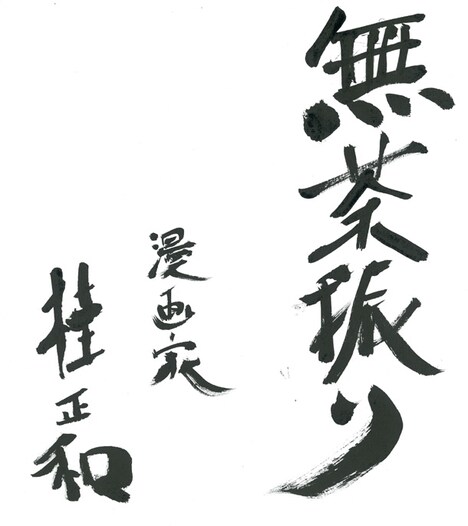 無茶振り
漫画家
桂正和